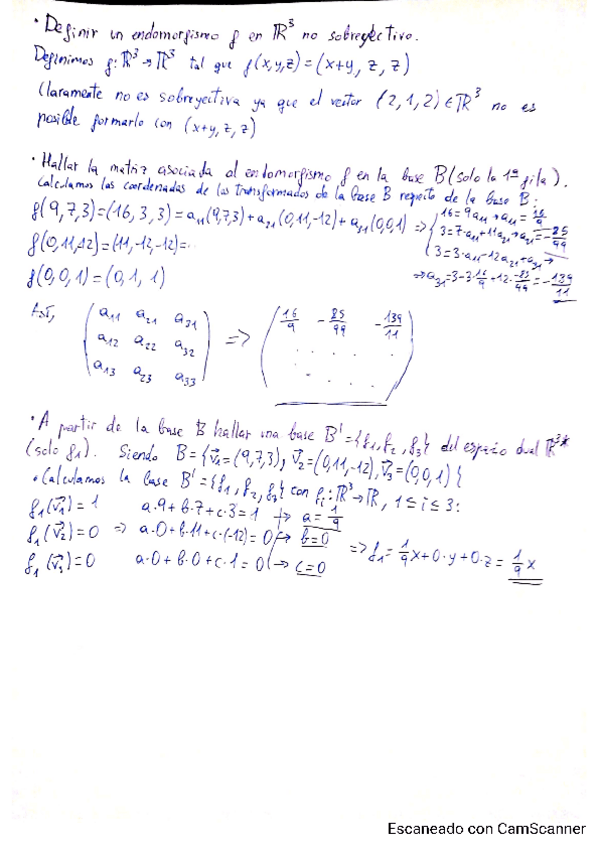 · Definir un endomorfismo f en ℝ³ no sobreyectivo.
Definimos f: ℝ³→ℝ³ tal que f(x,y,z)=(x+y, z, z)
Claramente no es sobreyectiva ya que el vector (2,1,2)∈ℝ³ no es
posible formarlo con (x+y, z, z)
· Hallar la matriz asociada al endomorfismo f en la base B (solo la 1ª fila).
Calculamos las coordenadas de los transformados de la base B respecto de la base B:
f(9,7,3)=(16,3,3)=a₁₁(9,7,3)+a₂₁(0,11,-12)+a₃₁(0,0,1) ⇒ { 16=9a₁₁→a₁₁=16/9
3=7·a₁₁+11a₂₁→a₂₁=-85/99
3=3·a₁₁-12a₂₁+a₃₁→
f(0,11,12)=(11,-12,-12)=...
⇒a₃₁=3-3·16/9+12·-85/99=-139/11
f(0,0,1)=(0,1,1)
Así, (a₁₁ a₂₁ a₃₁ ⇒ (16/9 -85/99 -139/11
a₁₂ a₂₂ a₃₂ . . . .
a₁₃ a₂₃ a₃₃) . . . .)
· A partir de la base B hallar una base B'={f₁,f₂,f₃} del espacio dual ℝ³*
(solo f₁). Siendo B={v⃗₁=(9,7,3), v⃗₂=(0,11,-12), v⃗₃=(0,0,1)}
· Calculamos la base B'={f₁,f₂,f₃} con fᵢ:ℝ³→ℝ, 1≤i≤3:
f₁(v⃗₁)=1 a·9+b·7+c·3=1 → a=1/9
f₁(v⃗₂)=0 ⇒ a·0+b·11+c·(-12)=0 → b=0 ⇒f₁=1/9x+0·y+0·z=1/9x
f₁(v⃗₃)=0 a·0+b·0+c·1=0 → c=0
Escaneado con CamScanner